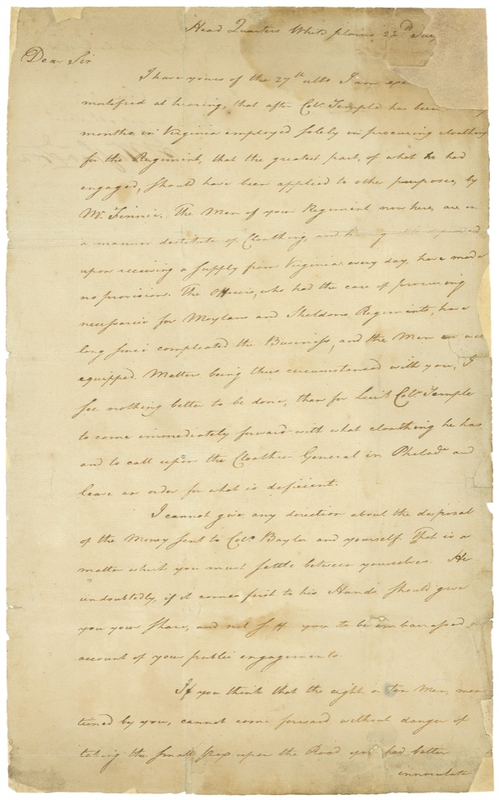 Head Quarters White plains 22d
Dear Sir
I have yours of the 27th ulto. I am
mortified at hearing, that after Colo. Temple has been
months in Virginia employed solely in procuring cloathing
for the Regiment, that the greatest part, of what he had
engaged, should have been applied to other purposes, by
Mr. Finnie. The Men of your Regiment now here, are in
a manner destitute of Cloathing, and
upon receiving a supply from Virginia every day, have made
no provision. The Officers, who had the care of procuring
necessaries for Moylans and Sheldons Regiments, have
long since compleated the Business, and the Men are well
equipped. Matters being thus circumstanced with you, I
see nothing better to be done, than for Lieut. Colo. Temple
to come immediately forward with what cloathing he has
and to call upon the Cloathier General in Philada. and
leave an order for what is deficient.
I cannot give any direction about the disposal
of the Money sent to Colo. Baylor and yourself. That is a
matter which you must settle between yourselves. He
undoubtedly, if it comes first to his Hands, should give
you your share, and not you to be embarrassed
account of your public engagements.
If you think that the eight or ten Men, men
tioned by you, cannot come forward without danger of
taking the small pox upon the Road you had better
innoculate